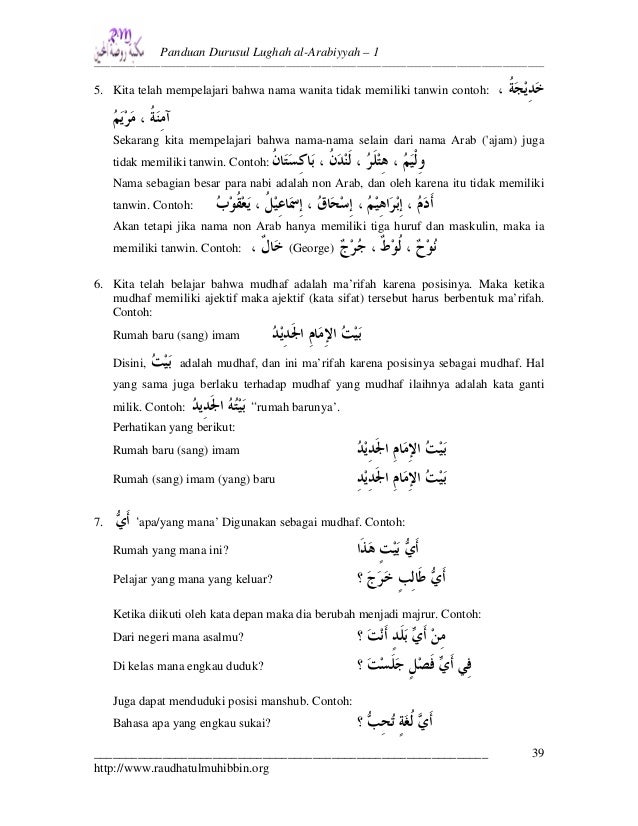 RM
مكتبة روضة المحبين
Panduan Durusul Lughah al-Arabiyyah – 1
5. Kita telah mempelajari bahwa nama wanita tidak memiliki tanwin contoh: خَدِيْجَةُ ،
آمِنَةُ ، مَرْيَمُ
Sekarang kita mempelajari bahwa nama-nama selain dari nama Arab ('ajam) juga
tidak memiliki tanwin. Contoh: وِلْيَمُ ، هِتْلَرُ ، لَنْدَنُ ، بَاكِسْتَانُ
Nama sebagian besar para nabi adalah non Arab, dan oleh karena itu tidak memiliki
tanwin. Contoh: أَدَمُ ، إِبْرَاهِيْمُ ، إِسْحَاقُ ، إِسْمَاعِيْلُ ، يَعْقُوْبُ
Akan tetapi jika nama non Arab hanya memiliki tiga huruf dan maskulin, maka ia
memiliki tanwin. Contoh: نُوْحٌ ، لُوْطٌ ، جُرْجٌ (George) ، خَالٌ
6. Kita telah belajar bahwa mudhaf adalah ma'rifah karena posisinya. Maka ketika
mudhaf memiliki ajektif maka ajektif (kata sifat) tersebut harus berbentuk ma'rifah.
Contoh:
Rumah baru (sang) imam بَيْتُ الإِمَامِ الْجَدِيْدُ
Disini, بَيْتُ adalah mudhaf, dan ini ma'rifah karena posisinya sebagai mudhaf. Hal
yang sama juga berlaku terhadap mudhaf yang mudhaf ilaihnya adalah kata ganti
milik. Contoh: بَيْتُهُ الْجَدِيدُ "rumah barunya'.
Perhatikan yang berikut:
Rumah baru (sang) imam بَيْتُ الإِمَامِ الْجَدِيْدُ
Rumah (sang) imam (yang) baru بَيْتُ الإِمَامِ الْجَدِيْدِ
7. أَيُّ 'apa/yang mana' Digunakan sebagai mudhaf. Contoh:
Rumah yang mana ini? أَيُّ بَيْتٍ هَذَا
Pelajar yang mana yang keluar? أَيُّ طَالِبٍ خَرَجَ ؟
Ketika diikuti oleh kata depan maka dia berubah menjadi majrur. Contoh:
Dari negeri mana asalmu? مِنْ أَيِّ بَلَدٍ أَنْتَ ؟
Di kelas mana engkau duduk? فِي أَيِّ فَصْلٍ جَلَسْتَ ؟
Juga dapat menduduki posisi manshub. Contoh:
Bahasa apa yang engkau sukai? أَيَّ لُغَةٍ تُحِبُّ ؟
39
http://www.raudhatulmuhibbin.org